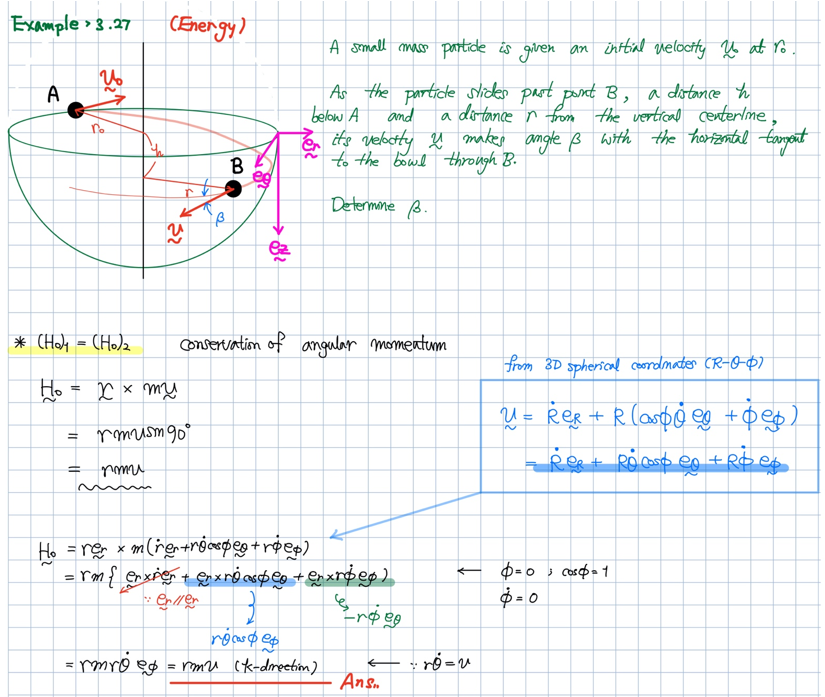 Example > 3.27 (Energy)
A small mass particle is given an initial velocity v₀ at r₀.
As the particle slides past point B, a distance h
below A and a distance r from the vertical centerline,
it's velocity v makes angle β with the horizontal tangent
to the bowl through B.
Determine β.
A
v₀
r₀
h
e_r
B
e_θ
r
β
v
e_z
* (H₀)₁ = (H₀)₂ conservation of angular momentum
from 3D spherical coordinates (R-θ-ϕ)
H₀ = r × mv
v = Ṙe_R + R(cosϕθ̇e_θ + ϕ̇e_ϕ)
= rmv sin90°
= Ṙe_R + Rθ̇cosϕ e_θ + Rϕ̇e_ϕ
= rmv
H₀ = re_r × m(ṙe_r + rθ̇cosϕe_θ + rϕ̇e_ϕ)
= rm{ e_r×ṙe_r + e_r×rθ̇cosϕe_θ + e_r×rϕ̇e_ϕ) ← ϕ=0 ; cosϕ=1
∵ e_r // e_r
ϕ̇=0
-rϕ̇e_θ
rθ̇cosϕe_ϕ
= rmrθ̇ e_ϕ = rmv (k-direction) ← ∵ rθ̇ = v
Ans.